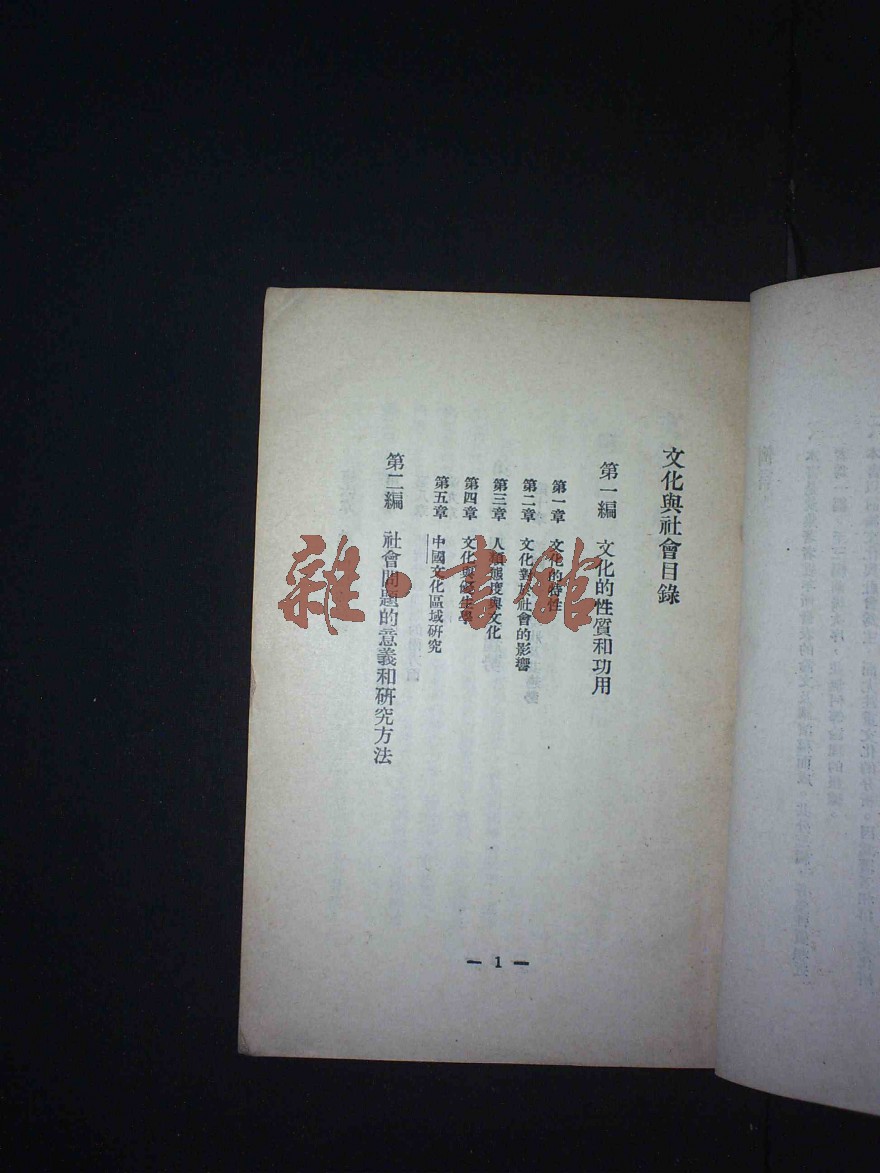 文化與社會目錄
第一編　文化的性質和功用
第一章　文化的特性
第二章　文化對於社會的影響
第三章　人類態度與文化
第四章　文化與優生學
第五章　中國文化區域研究
第二編　社會問題的意義和研究方法
— 1 —
雜·書館